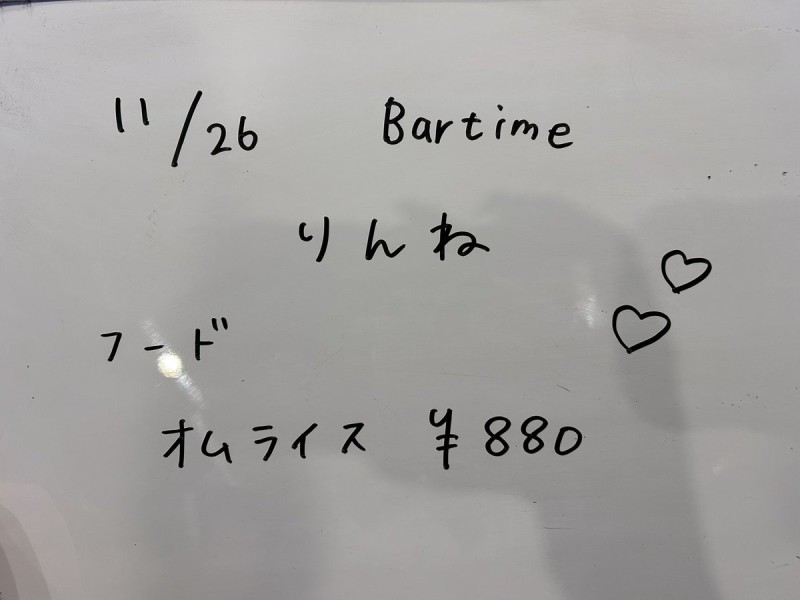 11/26 Bartime
りんね
フード
オムライス ¥880